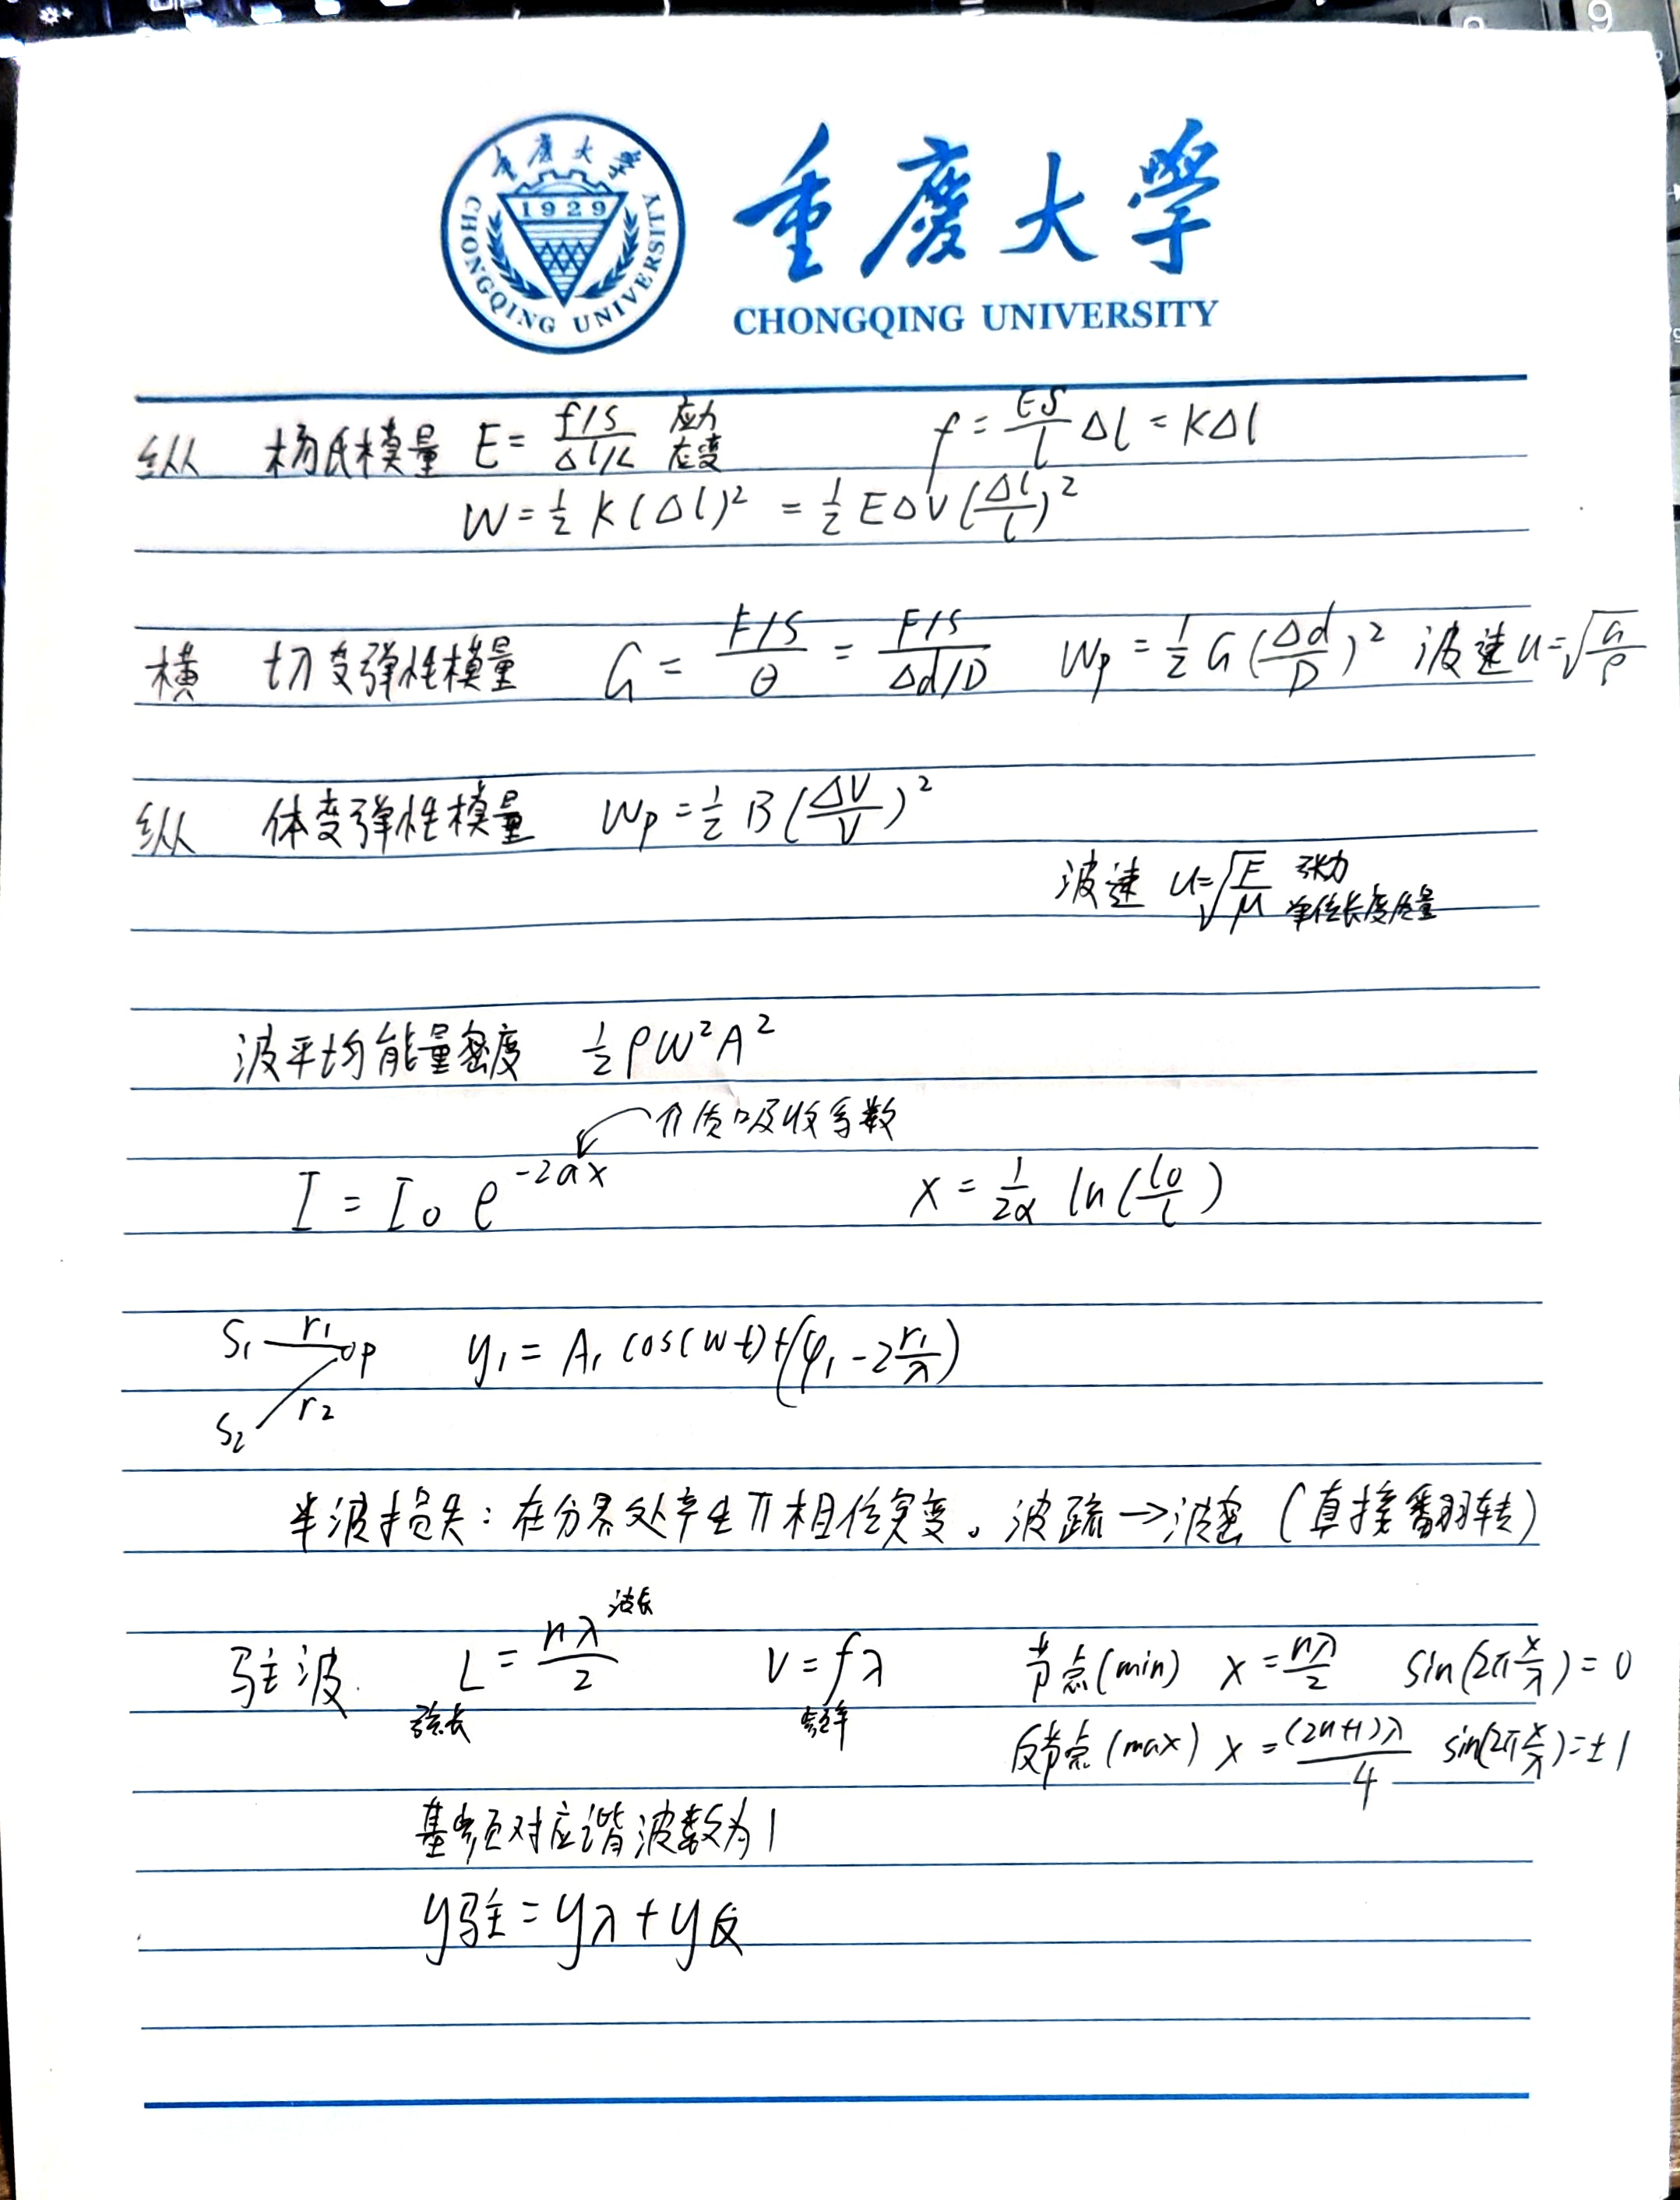 重慶大學
1929
CHONGQING UNIVERSITY
重慶大學
CHONGQING UNIVERSITY
纵 杨氏模量 E = (f/S)/(Δl/L) 应力 应变 f = ES/l Δl = KΔl
W = 1/2 K(Δl)² = 1/2 EΔV(Δl/l)²
横 切变弹性模量 G = (F/S)/θ = (F/S)/(Δd/D) Wp = 1/2 G(Δd/D)² 波速 u = √(G/ρ)
纵 体变弹性模量 Wp = 1/2 B(ΔV/V)²
波速 u = √(F/μ) 张力 单位长度质量
波平均能量密度 1/2 ρW²A²
介质吸收系数
I = I₀ e^(-2αx) x = 1/(2α) ln(l₀/l)
S₁ r₁ P y₁ = A₁ cos(wt)+(φ₁ - 2 r₁/λ)
S₂ r₂
半波损失：在分界处产生π相位突变。波疏→波密（直接翻转）
驻波. L = nλ/2 波长 弦长 V = fλ 频率 节点(min) x = nλ/2 sin(2π x/λ) = 0
反节点(max) x = (2n+1)λ/4 sin(2π x/λ) = ±1
基频对应谐波数为1
y驻 = y入 + y反